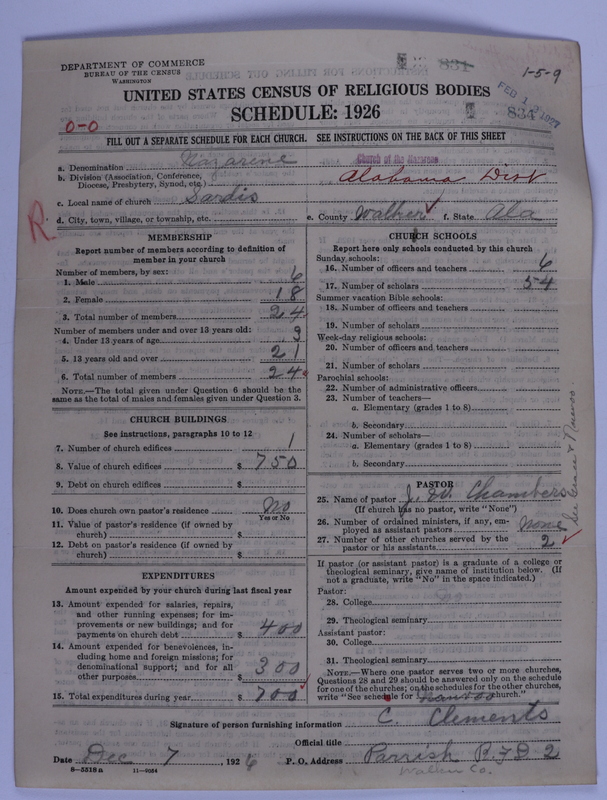 DEPARTMENT OF COMMERCE
BUREAU OF THE CENSUS
WASHINGTON
834
1-5-9
FEB 1 1927
UNITED STATES CENSUS OF RELIGIOUS BODIES
SCHEDULE: 1926
834
0-0
FILL OUT A SEPARATE SCHEDULE FOR EACH CHURCH. SEE INSTRUCTIONS ON THE BACK OF THIS SHEET
a. Denomination Nazarine Church of the Nazarene
b. Division (Association, Conference, Diocese, Presbytery, Synod, etc.) Alabama Dist
c. Local name of church Sardis
d. City, town, village, or township, etc. e. County Walker f. State Ala
R.
MEMBERSHIP
Report number of members according to definition of
member in your church
Number of members, by sex:
1. Male 6
2. Female 18
3. Total number of members 24
Number of members under and over 13 years old:
4. Under 13 years of age 3
5. 13 years old and over 21
6. Total number of members 24
NOTE.—The total given under Question 6 should be the
same as the total of males and females given under Question 3.
CHURCH BUILDINGS
See instructions, paragraphs 10 to 12
7. Number of church edifices 1
8. Value of church edifices $ 750
9. Debt on church edifices $
10. Does church own pastor's residence No
Yes or No
11. Value of pastor's residence (if owned by
church) $
12. Debt on pastor's residence (if owned by
church) $
EXPENDITURES
Amount expended by your church during last fiscal year
13. Amount expended for salaries, repairs,
and other running expenses; for im-
provements or new buildings; and for
payments on church debt $ 400
14. Amount expended for benevolences, in-
cluding home and foreign missions; for
denominational support; and for all
other purposes $ 300
15. Total expenditures during year $ 700
CHURCH SCHOOLS
Report here only schools conducted by this church
Sunday schools:
16. Number of officers and teachers 6
17. Number of scholars 54
Summer vacation Bible schools:
18. Number of officers and teachers
19. Number of scholars
Week-day religious schools:
20. Number of officers and teachers
21. Number of scholars
Parochial schools:
22. Number of administrative officers
23. Number of teachers—
a. Elementary (grades 1 to 8)
b. Secondary
24. Number of scholars—
a. Elementary (grades 1 to 8)
b. Secondary
PASTOR
25. Name of pastor J. W. Chambers
(If church has no pastor, write "None")
26. Number of ordained ministers, if any, em-
ployed as assistant pastors None
27. Number of other churches served by the
pastor or his assistants 2
If pastor (or assistant pastor) is a graduate of a college or
theological seminary, give name of institution below. (If
not a graduate, write "No" in the space indicated.)
Pastor:
28. College
29. Theological seminary
Assistant pastor:
30. College
31. Theological seminary
NOTE.—Where one pastor serves two or more churches,
Questions 28 and 29 should be answered only on the schedule
for one of the churches; on the schedules for the other churches,
write "See schedule for Nauvoo
Signature of person furnishing information C. Clements
Official title
Date Dec 7, 1926 P. O. Address Parrish RFD 2
Walker Co.
8-5518a 11-9084